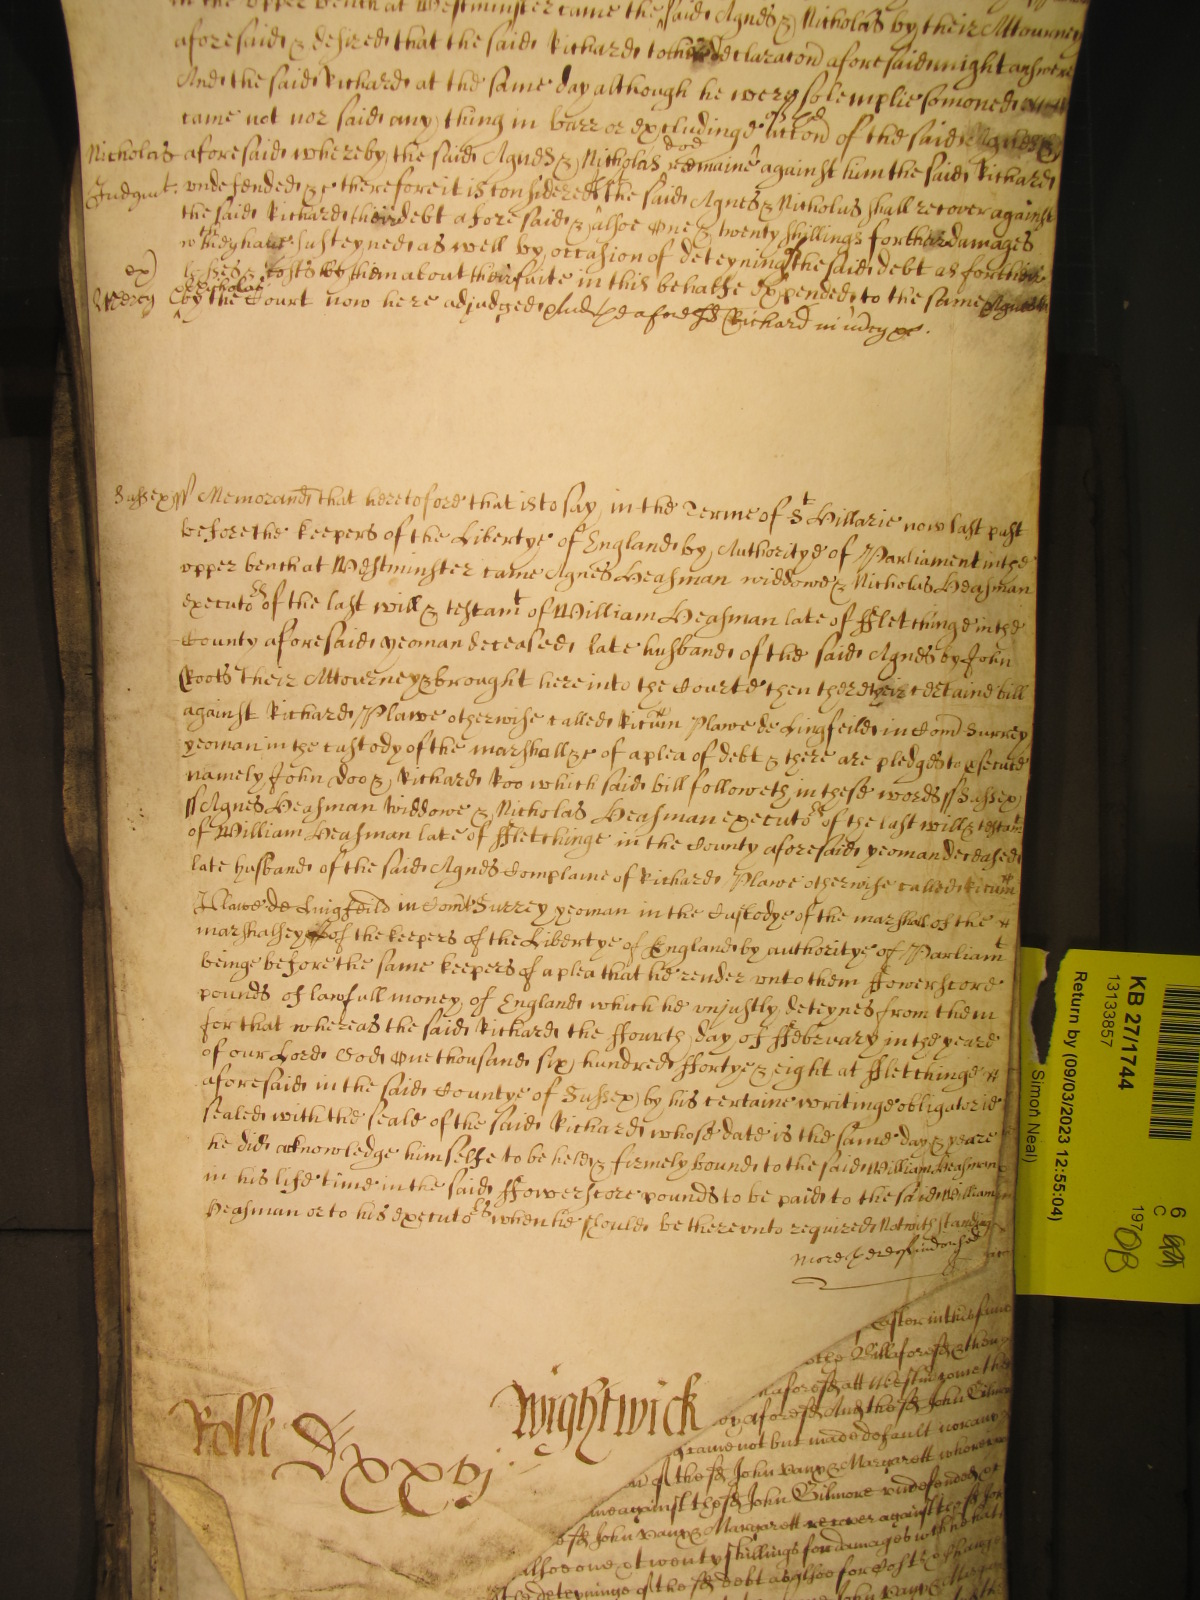 in the upper bench at Westminster came the said Agnes & Nicholas by their Attourney
aforesaid & desired that the said Richard to declaracon aforesaid might answere
And the said Richard at the same day although he were solemplie somoned
came not nor said any thing in barr or excludinge of the accon of the said Agnes &
Nicholas aforesaid whereby the said Agnes & Nicholas doe remaine against him the said Richard
Judgmt. undefended &c therefore it is considered the said Agnes & Nicholas shall recover against
the said Richard their debt aforesaid & alsoe One & twenty shillings for their damages
wch they have susteyned as well by occasion of deteyning the said debt as for their
losses & costs by them about their suite in this behalfe expended to the same Agnes &
Nicholas
Mercy by the Court now here adjudged Richard in
Sussex ss Memorand that heretofore that is to say in the Terme of St Hillarie now last past
before the keepers of the Libertye of England by Authoritye of Parliament in the
upper bench at Westminster came Agnes Heasman widdowe & Nicholas Heasman
executors of the last will & testamt of William Heasman late of ffletchinge in the
County aforesaid yeoman deceased late husband of the said Agnes by John
Roots their Attourney & brought here into the Courte then there their certaine bill
against Richard Plawe otherwise called Ricum Plawe de Lingfeild in Com Surrey
yeoman in the custody of the marshall &c of a plea of debt & there are pledges to
namely John Doo & Richard Roo which said bill followeth in these words ss Sussex
ss Agnes Heasman widdowe & Nicholas Heasman executors of the last will & testamt
of William Heasman late of ffletchinge in the County aforesaid yeoman deceased
late husband of the said Agnes Complaine of Richard Plawe otherwise called Ricum
Plawe de Lingfeild in Com Surrey yeoman in the Custodye of the marshall of the
marshalsey of the keepers of the Libertye of England by authoritye of Parliamt
beinge before the same keepers of a plea that he render unto them ffowerscore
pounds of lawfull money of England which he unjustly deteynes from them
for that whereas the said Richard the ffourth day of ffebruary in the yeare
of our Lord God One thousand six hundred ffortye & eight at ffletchinge
aforesaid in the said Countye of Sussex by his certaine writinge obligatorie
sealed with the seale of the said Richard whose date is the same day & yeare
he did acknowledge himselfe to be held & firmely bound to the said William Heasman
in his life time in the said ffowerscore pounds to be paid to the said William
Heasman or to his executors when he should be thereunto required Notwithstanding
more
Rolle Wightwick
Dxxvj
Easter in
aforesd att Westmr came the
aforesd And the sd John Gilmore
came not but made default nor any
of the sd John vany & Margarett whereupon
against the sd John Gilmore undefended &c
sd John vany & Margarett recover against the sd John
alsoe one & twenty shillings for damages
the deteyninge of the sd debt as alsoe for Costs
John vany & Margarett
KB 27/1744
13133857
Return by (09/03/2023 12:55:04)
Simon Neal)
6
C
197